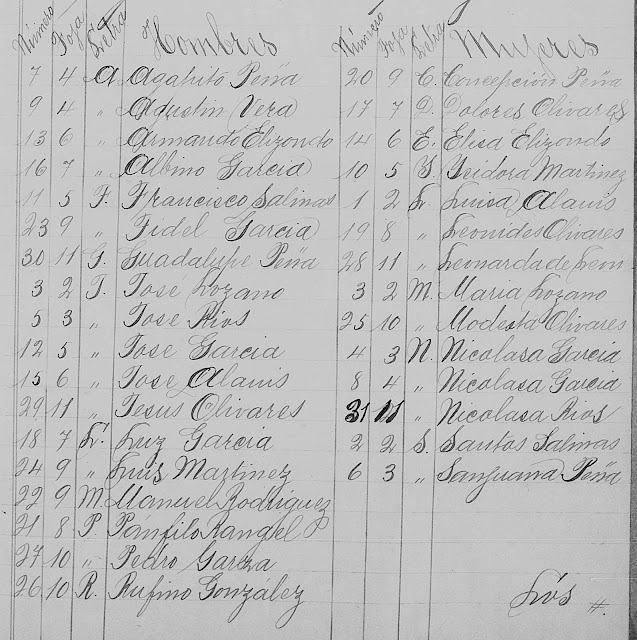 Número Foja Letra Hombres
7 4 A Agapito Peña
9 4 " Agustin Vera
13 6 " Armando Elizondo
16 7 " Albino Garcia
11 5 F. Francisco Salinas
23 9 " Fidel Garcia
30 11 G. Guadalupe Peña
3 2 J. Jose Lozano
5 3 " Jose Rios
12 5 " Jose Garcia
15 6 " Jose Alanis
29 11 " Jesus Olivares
18 7 L. Luz Garcia
24 9 " Luis Martinez
22 9 M. Manuel Rodriguez
21 8 P. Pánfilo Rangel
27 10 " Pedro Garza
26 10 R. Rufino González
Número Foja Letra Mujeres
20 9 C. Concepción Peña
17 7 D. Dolores Olivares
14 6 E. Elisa Elizondo
10 5 Y. Ysidora Martinez
1 2 L. Luisa Alanis
19 8 " Leonides Olivares
28 11 " Leonarda de Leon
3 2 M. Maria Lozano
25 10 " Modesta Olivares
4 3 N. Nicolasa Garcia
8 4 " Nicolasa Garcia
31 11 " Nicolasa Rios
2 2 S. Santos Salinas
6 3 " Sanjuana Peña